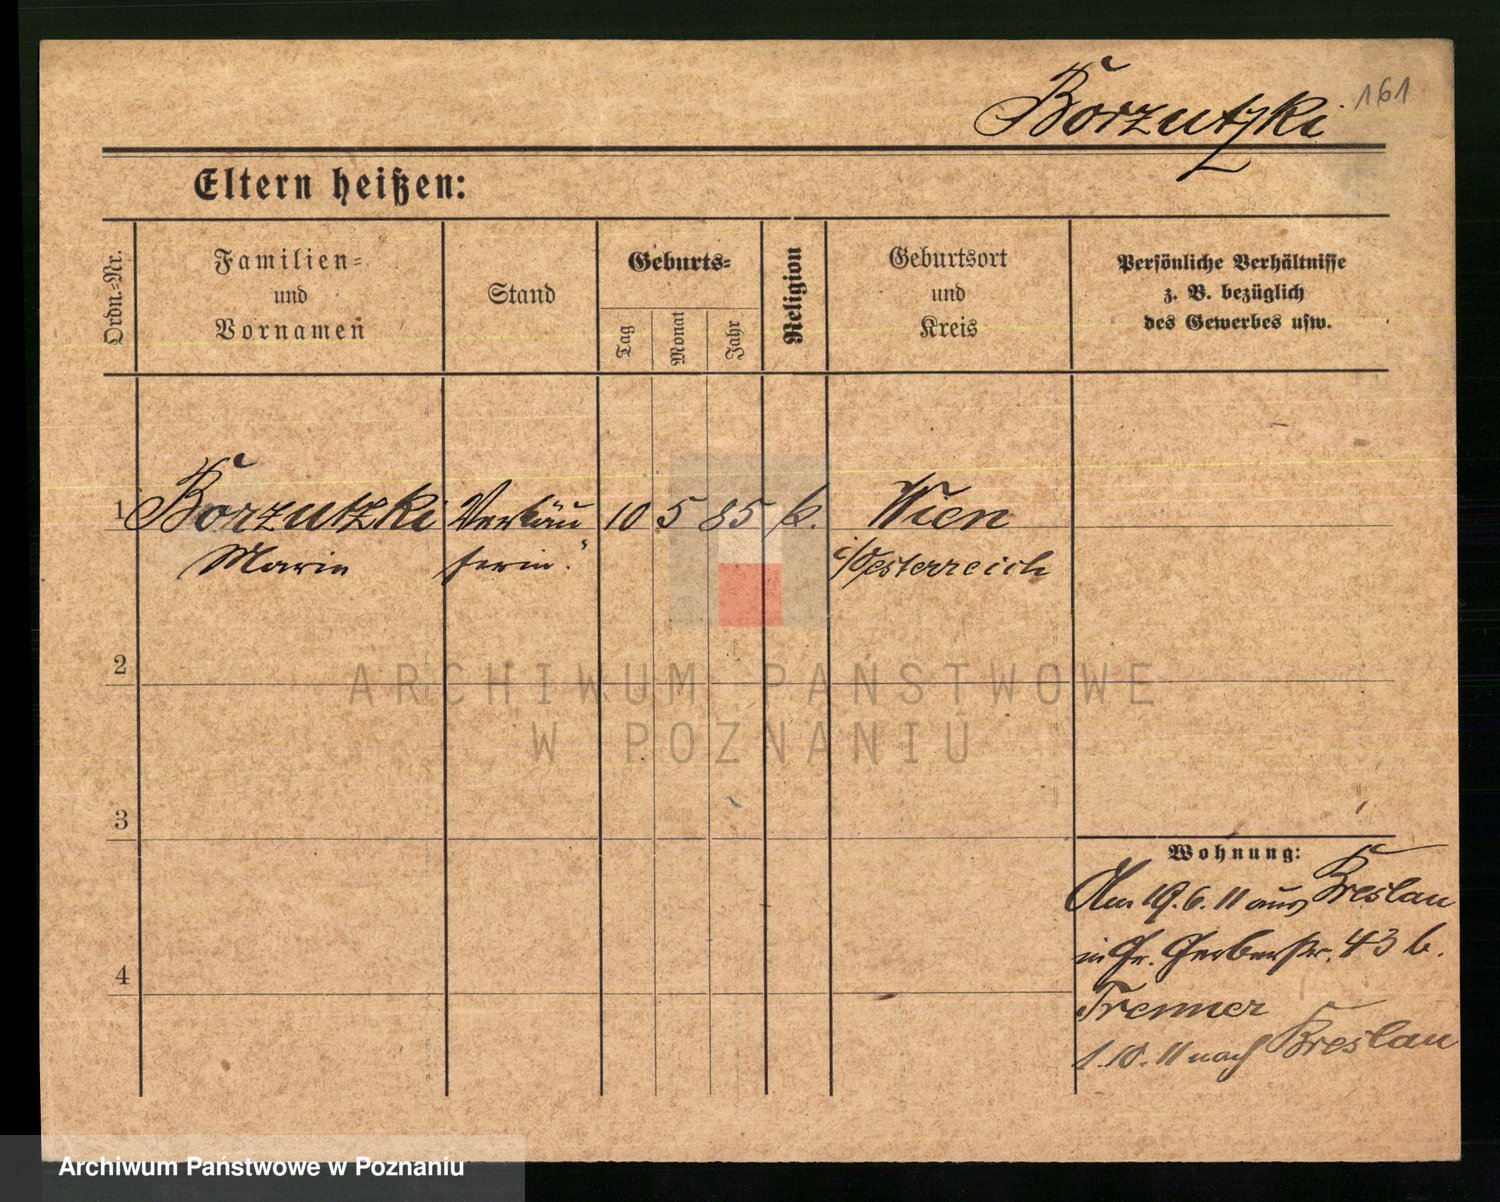 161
Borzutzki
Eltern heißen:
Ordn.-Nr.
Familien-
und
Vornamen
Stand
Geburts-
Tag
Monat
Jahr
Religion
Geburtsort
und
Kreis
Persönliche Verhältnisse
z. B. bezüglich
des Gewerbes usw.
1 Borzutzki Verkäu 10 5 85 k. Wien
Marie ferin. i/Oesterreich
2
ARCHIWUM PAŃSTWOWE
W POZNANIU
3
Wohnung:
Am 19.6.11 aus Breslau
in Gr. Gerberstr. 43 b.
4
Tremmer
1.10.11 nach Breslau
Archiwum Państwowe w Poznaniu